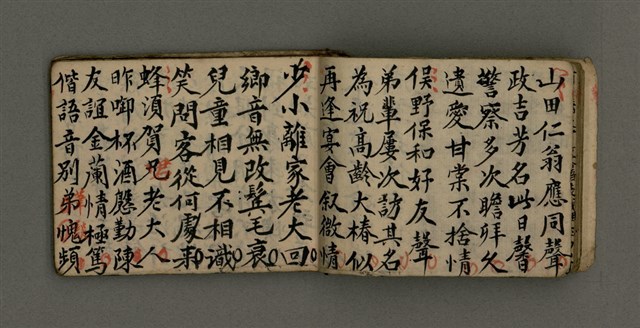 山田仁翁應同聲
政吉芳名此日馨
警察多次瞻拜久
遺愛甘棠不捨情
俣野保和好友聲
弟輩屢次訪其名
為祝高齡大椿似
再逢宴會叙微情
少小離家老大回
鄉音無改鬂毛衰
兒童相見不相識
笑問客從何處來
蜂須賀兄老大人
昨啣杯酒慇勤陳
友誼金蘭情極篤
偕語音別弟愧頻